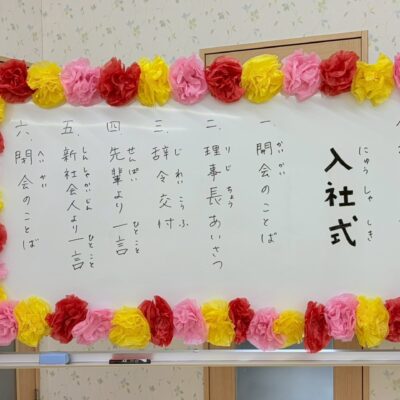 にゅう しゃ しき
入社式
かいかい
一、開会のことば
りじちょう
二、理事長あいさつ
じれいこうふ
三、辞令交付
せんぱい ひとこと
四、先輩より一言
しんしゃかいじん ひとこと
五、新社会人より一言
へいかい
六、閉会のことば